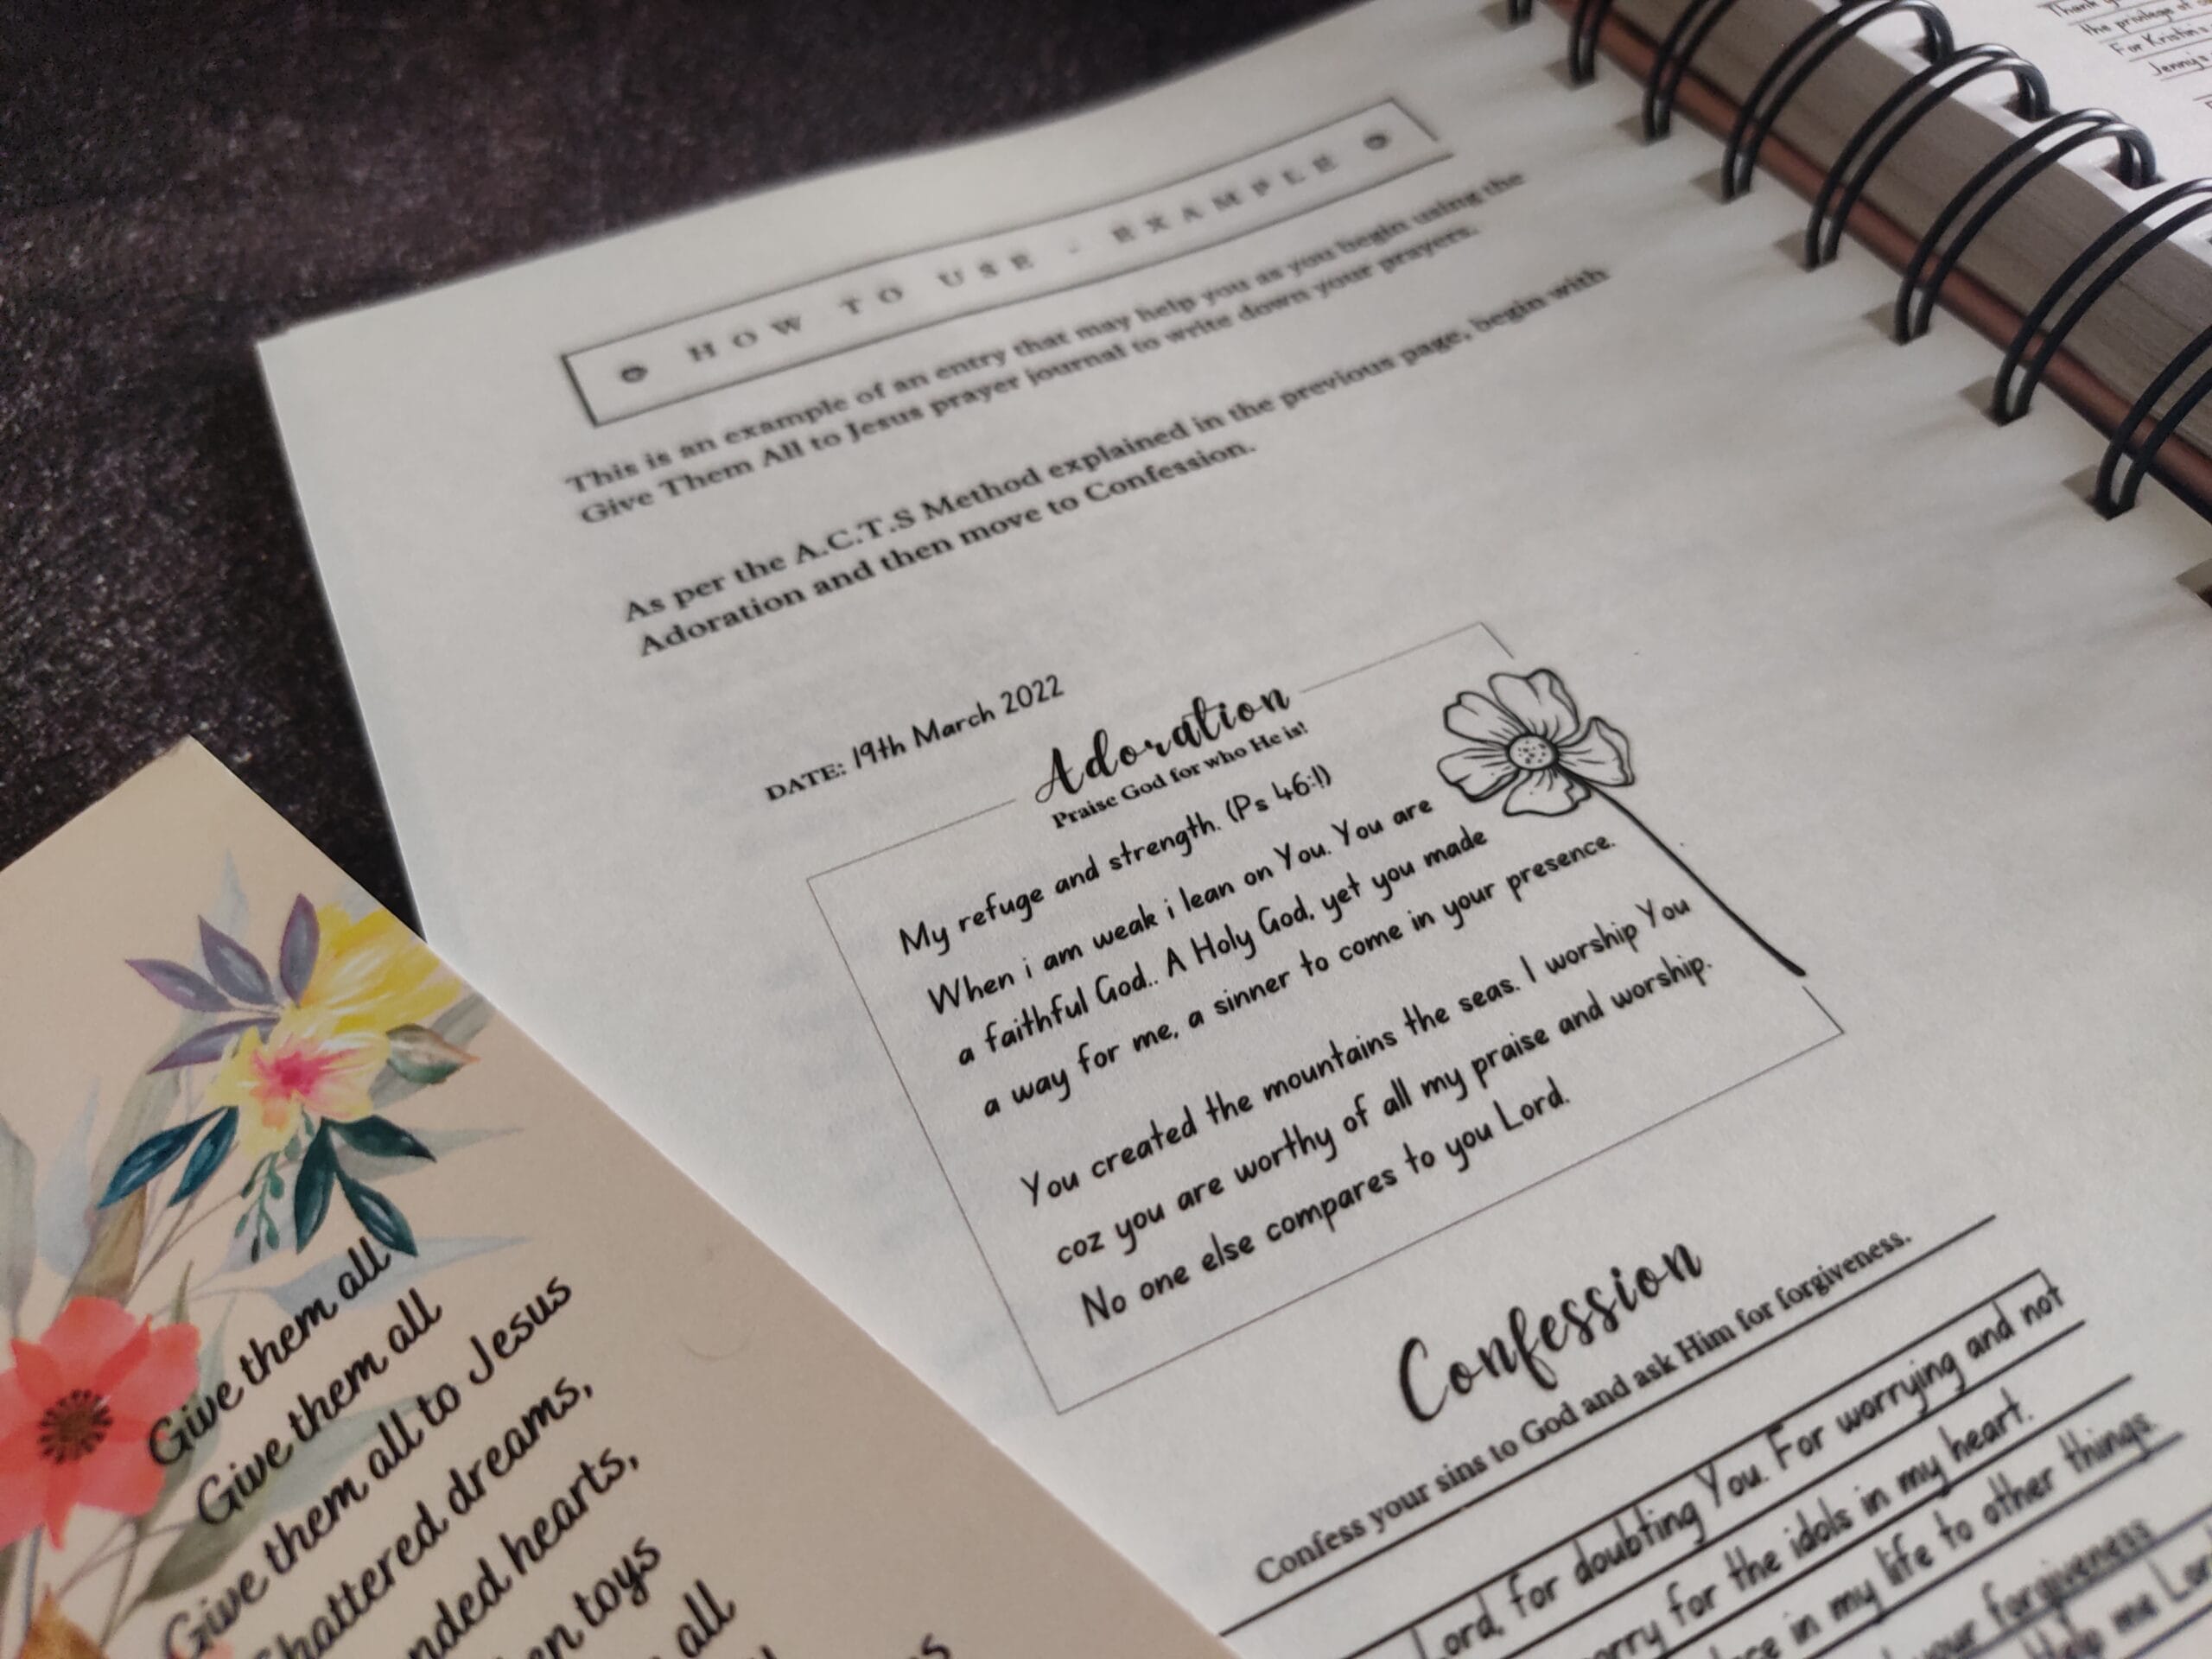 HOW TO USE - EXAMPLE
This is an example of an entry that may help you as you begin using the
Give Them All to Jesus prayer journal to write down your prayers.
As per the A.C.T.S Method explained in the previous page, begin with
Adoration and then move to Confession.
DATE: 19th March 2022
Adoration
Praise God for who He is!
My refuge and strength. (Ps 46:1)
When i am weak i lean on You. You are
a faithful God.. A Holy God, yet you made
a way for me, a sinner to come in your presence.
You created the mountains the seas. I worship You
coz you are worthy of all my praise and worship.
No one else compares to you Lord.
Confession
Confess your sins to God and ask Him for forgiveness.
Lord, for doubting You. For worrying and not
for the idols in my heart.
in my life to other things.
your forgiveness
Help me
Give them all
Give them all
Give them all to Jesus
Shattered dreams,
hearts,
toys
all
the privilege of
For